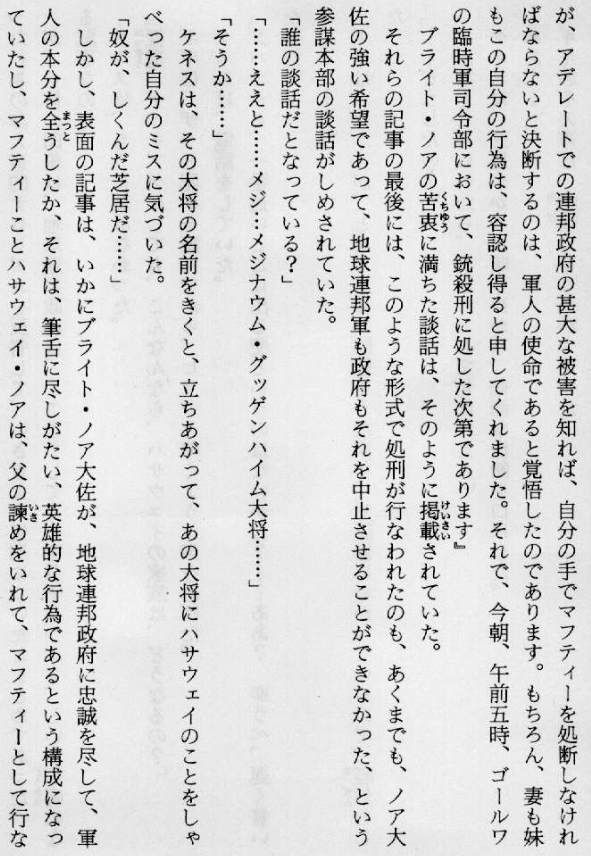 が、アデレートでの連邦政府の甚大な被害を知れば、自分の手でマフティーを処断しなけれ
ばならないと決断するのは、軍人の使命であると覚悟したのであります。もちろん、妻も妹
もこの自分の行為は、容認し得ると申してくれました。それで、今朝、午前五時、ゴールワ
の臨時軍司令部において、銃殺刑に処した次第であります』
ブライト・ノアの苦衷に満ちた談話は、そのように掲載されていた。
それらの記事の最後には、このような形式で処刑が行なわれたのも、あくまでも、ノア大
佐の強い希望であって、地球連邦軍も政府もそれを中止させることができなかった、という
参謀本部の談話がしめされていた。
「誰の談話だとなっている？」
「……ええと……メジ…メジナウム・グッゲンハイム大将……」
「そうか……」
ケネスは、その大将の名前をきくと、立ちあがって、あの大将にハサウェイのことをしゃ
べった自分のミスに気づいた。
「奴が、しくんだ芝居だ……」
しかし、表面の記事は、いかにブライト・ノア大佐が、地球連邦政府に忠誠を尽して、軍
人の本分を全うしたか、それは、筆舌に尽しがたい、英雄的な行為であるという構成になっ
ていたし、マフティーことハサウェイ・ノアは、父の諫めをいれて、マフティーとして行な